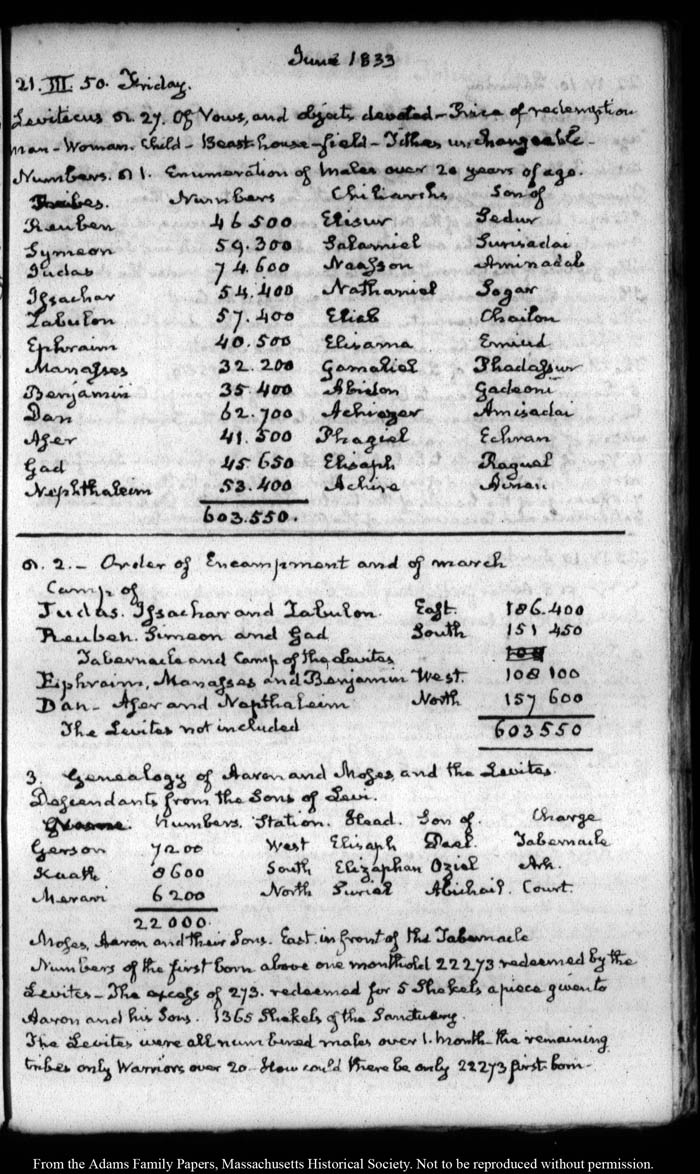 June 1833
21. III. 50. Friday.
Leviticus ch. 27. Of Vows, and objects devoted – Price of redemption
man – Woman. Child – Beast house – field – Tithes unchangeable –
Numbers. ch 1. Enumeration of Males over 20 years of age.
Tribes. Numbers Chiliarchs Son of
Reuben 46 500 Elisur Sedur
Symeon 59. 300 Salamiel Surisadai
Judas 74. 600 Naasson Aminadab
Issachar 54. 400 Nathaniel Sogar
Zabulon 57. 400 Eliab Chailon
Ephraim 40. 500 Elisama Emiud
Manasses 32. 200 Gamaliel Phadassur
Benjamin 35. 400 Abidan Gadeoni
Dan 62. 700 Achiezer Amisadai
Aser 41. 500 Phagiel Echran
Gad 45. 650 Elisaph Raguel
Nephthaleim 53. 400 Achire Ainan
603. 550.
ch. 2. – Order of Encampment and of march
Camp of
Judas. Issachar and Zabulon. East. 186. 400
Reuben. Simeon and Gad South 151 450
Tabernacle and Camp of the Levites
Ephraim, Manasses and Benjamin West. 108 100
Dan – Aser and Napthaleim North 157 600
The Levites not included 603 550
3. Genealogy of Aaron and Moses, and the Levites.
Descendants from the Sons of Levi.
Numbers. Station. Head. Son of. Charge
Gerson 7200 West Elisaph Dael. Tabernacle
Kaath 8600 South Elizaphan Oziel Ark.
Merari 6200 North Suriel Abichail. Court.
22 000.
Moses, Aaron and their Sons. East. in front of the Tabernacle
Numbers of the first born above one month old 22273 redeemed by the
Levites – The excess of 273. redeemed for 5 Shekels a piece given to
Aaron and his Sons. 1365 Shekels of the Sanctuary.
The Levites were all numbered males over 1. month – the remaining
tribes only Warriors over 20 – How could there be only 22273 first born –
From the Adams Family Papers, Massachusetts Historical Society. Not to be reproduced without permission.